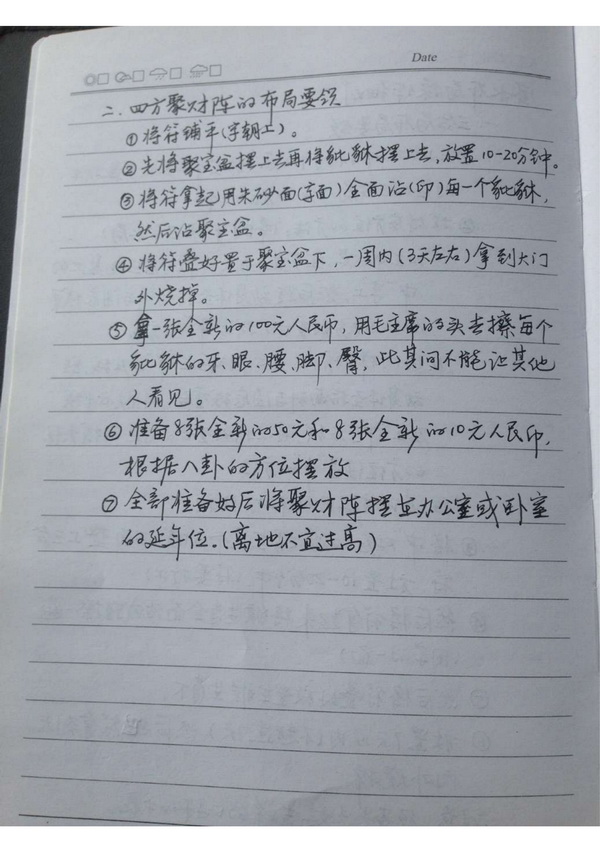 Date
二.四方聚财阵的布局要领
①将符铺平(字朝上)。
②先将聚宝盆摆上去再将貔貅摆上去,放置10-20分钟。
③将符拿起用朱砂面(字面)全面沾(印)每一个貔貅,
然后沾聚宝盆。
④将符叠好置于聚宝盆下,一周内(3天左右)拿到大门
外烧掉。
⑤拿一张全新的100元人民币,用毛主席的头去擦每个
貔貅的牙、眼、腰、脚、臀,此其间不能让其他
人看见。
⑥准备8张全新的50元和8张全新的10元人民币,
根据八卦的方位摆放
⑦全部准备好后将聚财阵摆至办公室或卧室
的延年位.(离地不宜过高)